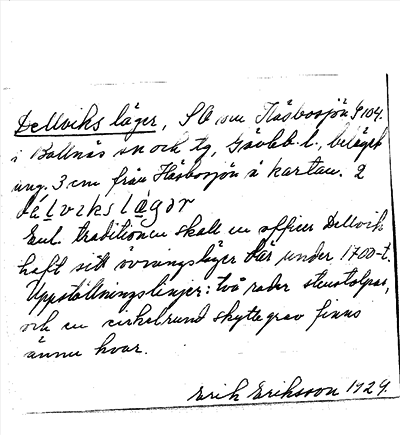 Dellviks läger, SO om Häsbosjön § 104.
i Bollnäs sn och tg, Gävleb. l., beläget
ung. 3 cm från Häsbosjön å kartan. 2
dèlvikslägər
Enl. traditionen skall en officer Dellvik
haft sitt övningsläger där under 1700-t.
Uppställningslinjer: två rader stenstolpar,
och en cirkelrund skyttegrav finns
ännu kvar.
Erik Eriksson 1929.